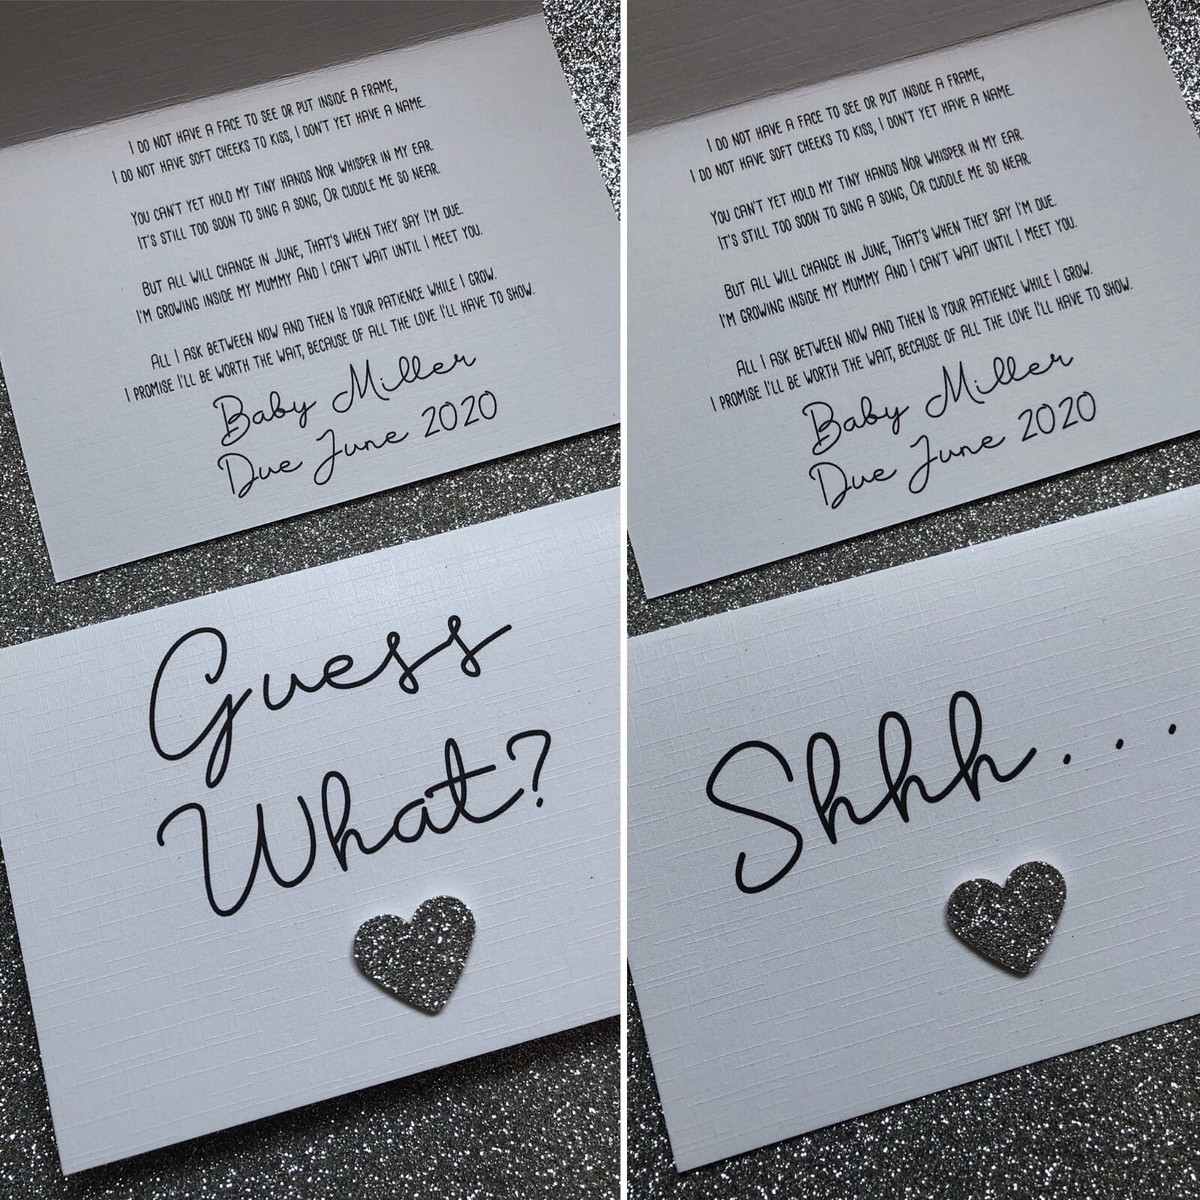 I do not have a face to see or put inside a frame,
I do not have soft cheeks to kiss, I don't yet have a name.
You can't yet hold my tiny hands Nor whisper in my ear.
It's still too soon to sing a song, Or cuddle me so near.
But all will change in June, That's when they say I'm due.
I'm growing inside my mummy And I can't wait until I meet you.
All I ask between now and then Is your patience while I grow.
I promise I'll be worth the wait, because of all the love I'll have to show.
Baby Miller
Due June 2020
Guess
What?
I do not have a face to see or put inside a frame,
I do not have soft cheeks to kiss, I don't yet have a name.
You can't yet hold my tiny hands Nor whisper in my ear.
It's still too soon to sing a song, Or cuddle me so near.
But all will change in June, That's when they say I'm due.
I'm growing inside my mummy And I can't wait until I meet you.
All I ask between now and then Is your patience while I grow.
I promise I'll be worth the wait, because of all the love I'll have to show.
Baby Miller
Due June 2020
Shhh...